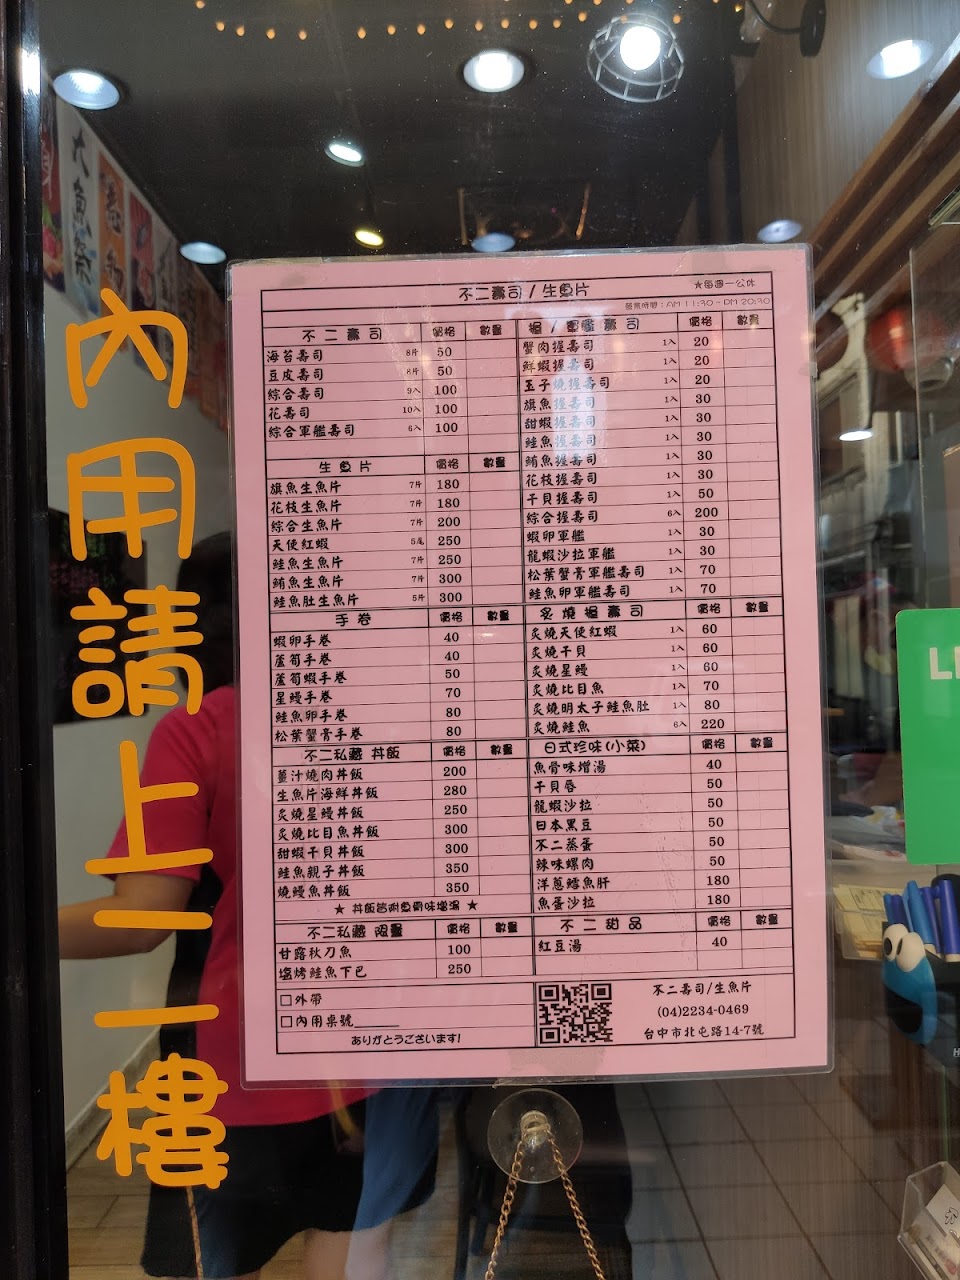 內用請上二樓
大魚祭
不二壽司 / 生魚片
★每週一公休
營業時間：AM 11:30 - PM 20:30
不二壽司 價格 數量
海苔壽司 8片 50
豆皮壽司 6片 50
綜合壽司 9入 100
花壽司 10入 100
綜合軍艦壽司 6入 100
生魚片 價格 數量
旗魚生魚片 7片 180
花枝生魚片 7片 180
綜合生魚片 7片 200
天使紅蝦 5尾 250
鮭魚生魚片 7片 250
鮪魚生魚片 7片 300
鮭魚肚生魚片 5片 300
手卷 價格 數量
蝦卵手卷 40
蘆筍手卷 40
蘆筍蝦手卷 50
星鰻手卷 70
鮭魚卵手卷 80
松葉蟹膏手卷 80
不二私藏 丼飯 價格 數量
薑汁燒肉丼飯 200
生魚片海鮮丼飯 280
炙燒星鰻丼飯 250
炙燒比目魚丼飯 300
甜蝦干貝丼飯 300
鮭魚親子丼飯 350
燒鰻魚丼飯 350
★ 丼飯皆附魚骨味增湯 ★
不二私藏 限量 價格 數量
甘露秋刀魚 100
塩烤鮭魚下巴 250
□外帶
□內用桌號______
ありがとうございます!
握 / 軍艦壽司 價格 數量
蟹肉握壽司 1入 20
鮮蝦握壽司 1入 20
玉子燒握壽司 1入 20
旗魚握壽司 1入 30
甜蝦握壽司 1入 30
鮭魚握壽司 1入 30
鮪魚握壽司 1入 30
花枝握壽司 1入 30
干貝握壽司 1入 50
綜合握壽司 6入 200
蝦卵軍艦 1入 30
龍蝦沙拉軍艦 1入 30
松葉蟹膏軍艦壽司 1入 70
鮭魚卵軍艦壽司 1入 70
炙燒握壽司 價格 數量
炙燒天使紅蝦 1入 60
炙燒干貝 1入 60
炙燒星鰻 1入 60
炙燒比目魚 1入 70
炙燒明太子鮭魚肚 1入 80
炙燒鮭魚 6入 220
日式珍味(小菜) 價格 數量
魚骨味增湯 40
干貝唇 50
龍蝦沙拉 50
日本黑豆 50
不二蒸蛋 50
辣味螺肉 50
洋蔥鱈魚肝 180
魚蛋沙拉 180
不二甜品 價格 數量
紅豆湯 40
不二壽司/生魚片
(04)2234-0469
台中市北屯路14-7號